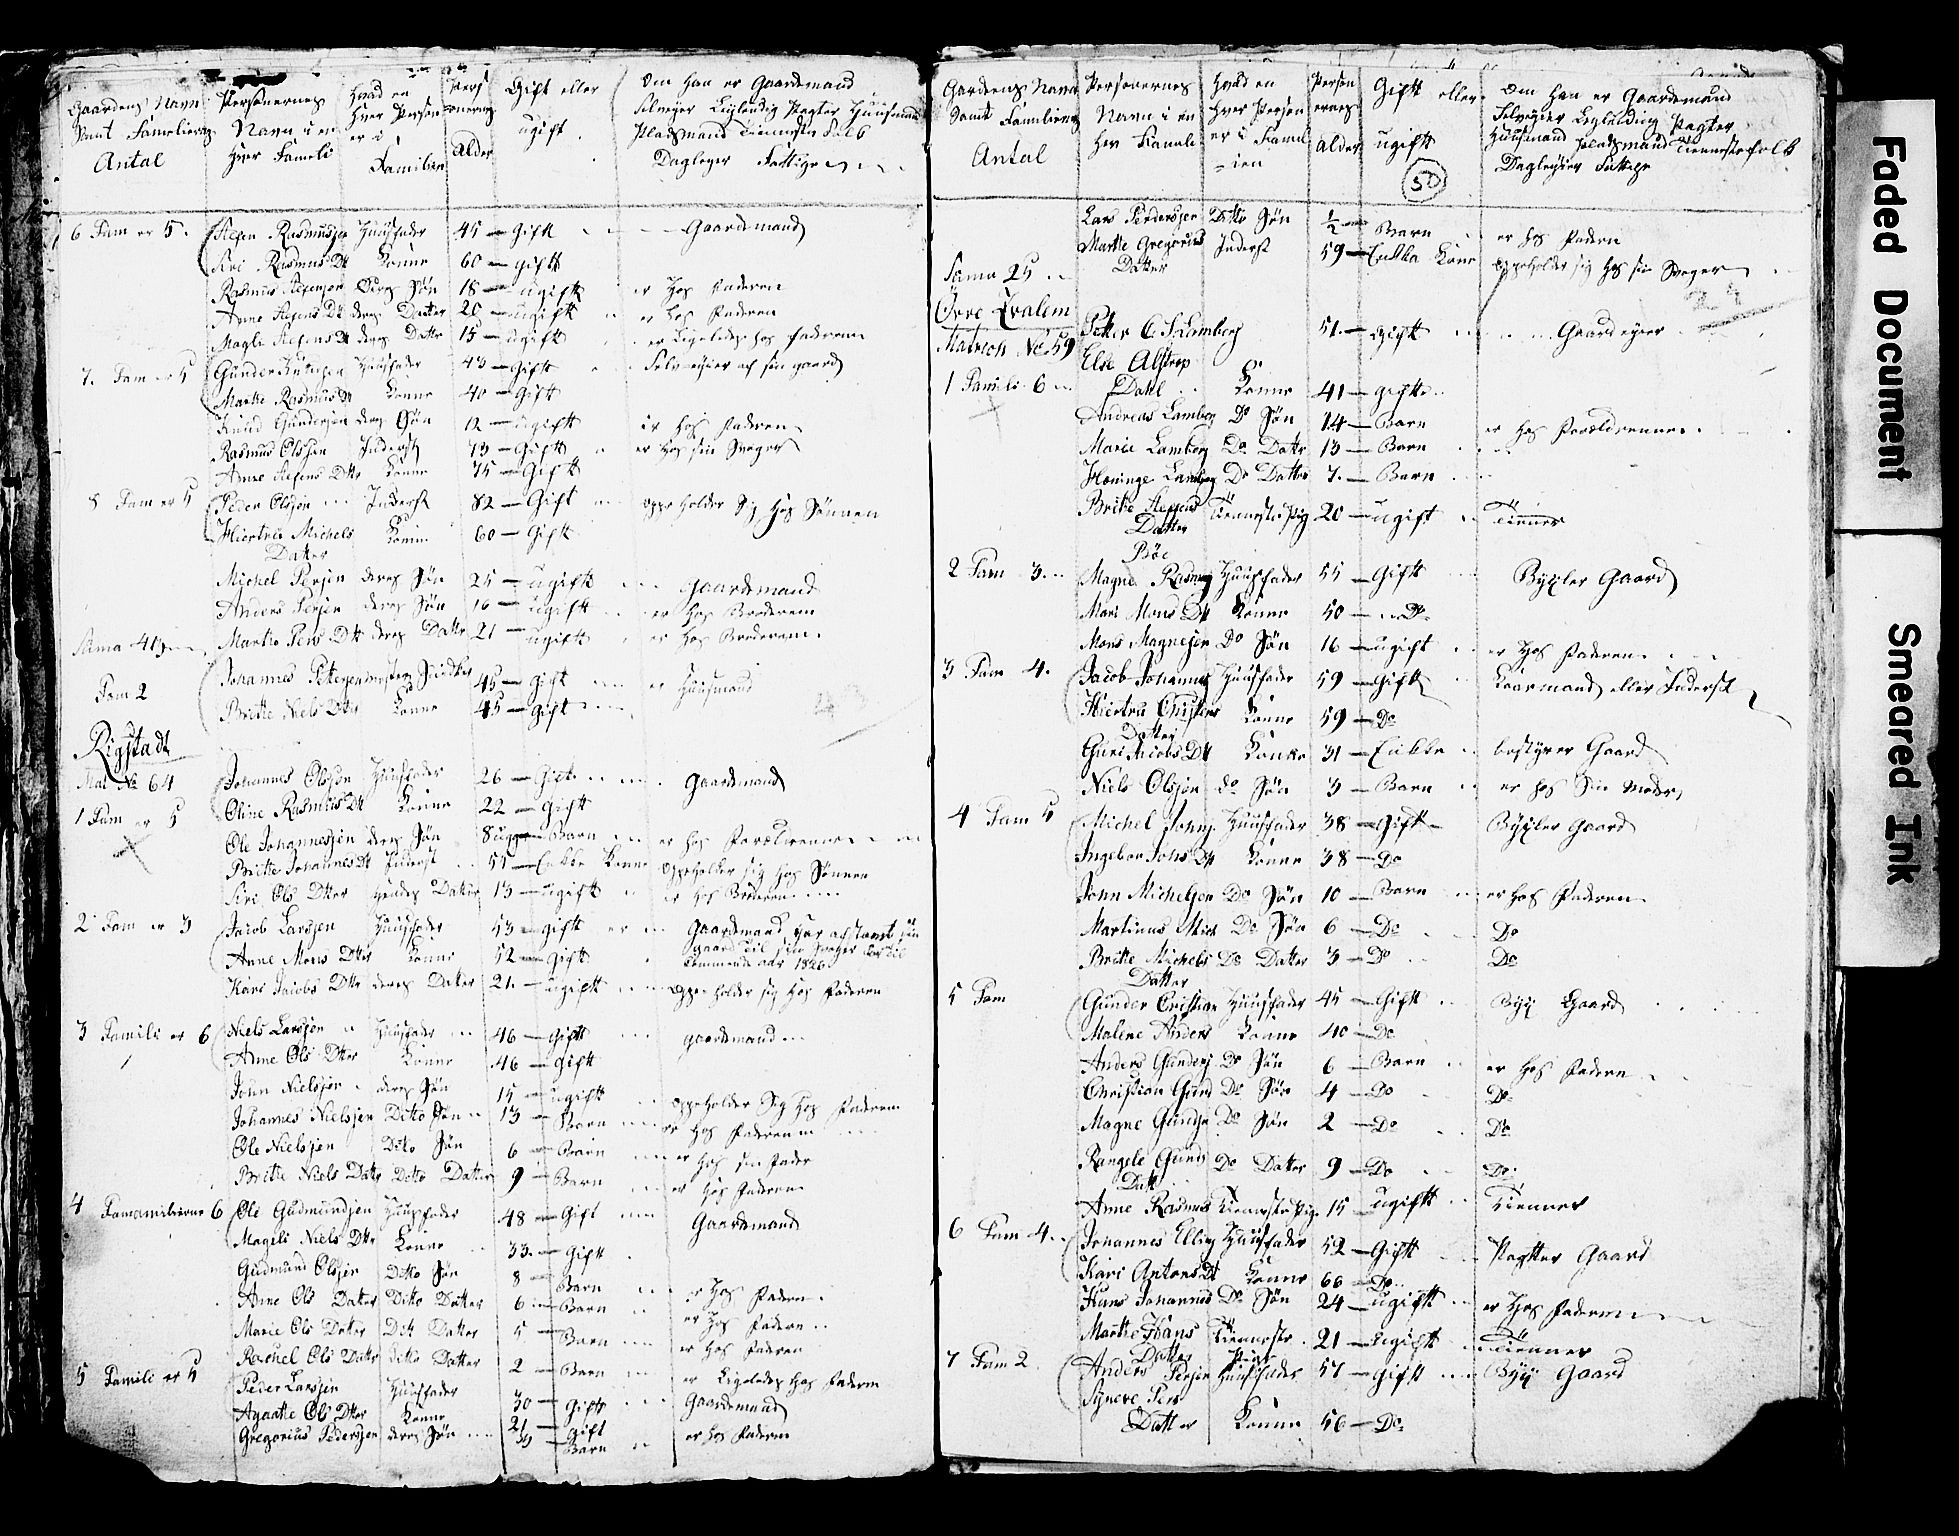 Gaardens Navn Personernes Hvad en Pers Gift eller Om han er Gaardemand
Samt Familiernes Navn i en hver Person onernes ugift Selveyer Leylending Pagter Huusmand
Antal hver Famili er i Familien Alder Pladsmand Tienneste folk
Daglejer Fattige
6 Fam er 5. Stefen Rasmussen Huusfader 45 — Gift Gaardemand
Siri Rasmus Dt Konne 60 — Gift
Rasmus Stefensen Deres Søn 18 — ugift er hos Faderen
Anne Stefens Dt deres Datter 20 — ugift er hos Faderen
Magle Stefens Dt deres Datter 15 — ugift er Ligeledes hos faderen
7. Fam er 5 Gunder Knutsen Huusfader 43 — Gift Selveyier af sin gaard
Marthe Rasmus Dt Konne 40 — Gift
Knud Gundersen deres Søn 12 — ugift er hos Faderen
Rasmus Olssøn Inderst 73 — Gift er hos sin Sveger
Anne Stefens Dtr Konne 75 — Gift
8 Fam er 5 Peder Olssøn Inderst 82 — Gift oppeholder Sig hos Sønnen
Kiertrue Michels Konne 60 — Gift
Datter
Michel Persen deres Søn 25 — ugift Gaardemand
Anders Persen deres Søn 16 — ugift er hos Broderen
Marthe Pers Dtr deres Datter 21 — ugift er hos Broderen
Fam 2 Johannes Pettersen 45 — Gift er Huusmand
Britte Niels Dtr Konne 45 — Gift
Rigstadt
Mat No 64 Johannes Olssøn Huusfader 26 — Gift Gaardemand
1 Fam er 5 Oline Rasmus Dt Konne 22 — Gift
Ole Johannessen deres Søn 8 uger — Barn er hos Forældrenne
Britte Johannes Dt Inderst 55 — Enkke Konne oppeholder sig hos Sønnen
Siri Ols Dtter hendes Datter 13 — ugift er hos Broderen
2 Fam er 3 Jacob Larssen Huusfader 53 — gift Gaardemand har afstaaet sin
gaard til sin Sveger for til
Anne Mons Dtter Konne 52 — Gift kommende aar 1826
Kari Jacobs Dtr deres Datter 21 — ugift oppeholder sig hos Faderen
3 Famili er 6 Niels Larssen Huusfader 46 — Gift gaardemand
Anne Ols Dtter Konne 46 — Gift
John Nielssen deres Søn 15 — ugift oppeholder Sig hos Faderen
Johannes Nielssen Ditto Søn 13 — Barn er hos Faderen
Ole Nielssen Ditto Søn 6 — Barn er hos sin Fader
Britte Niels Datter Ditto Datter 9 — Barn er hos Faderen
4 Famamilierne 6 Ole Gudmundsen Huusfader 48 — Gift Gaardemand
Mageli Niels Dtr Konne 33. — Gift
Gudmund Olssen Ditto Søn 8 — Barn er hos Fadern
Anne Ols Datter Ditto Datter 6 — Barn er hos Fadern
Marie Ols Datter Dito Datter 5 — Barn er hos Faderen
Rachel Ols Datter ditto Datter 2 — Barn er Ligeledes hos Faderen
5 Famili er 5 Peder Larssen Huusfader 30 — Gift Gaardemand
Agaathe Ols Dtter Konne 21 — Gift
Gregorius Pederssen deres Søn Barn er hos Faderen
Gardens Navn Personernes Hvad en Person Gift eller Om han er Gaardemand
Samt Familiernes Navn i en hver Person ernes ugift Selveyier Leylending Pagter
Antal hver Famili er i Famil Alder Huusmand pladsmand Tiennestefolk
-ien 50 Dagleyier Fattige
Lars Pedersen Ditto Søn 1/2 — Barn er hos Fadern
Marthe Gregorius Inderst 59 — Enkke Kone oppeholder sig hos sin Sveger
Datter
Suma 25
Øvre Qvalem
Matrich No 59 Petter C. S. Lamberg 51. — Gift Gaardeyier
1 Famili 6 Else Alstrup
Dahl Konne 41 — gift
Andreas Lamberg Do Søn 14 — Barn er hos Forældrenne
Marie Lamberg Do Datr 13 — Barn
Heninge Lamberg Do Datter 7. — Barn
Britte Stefens Tiennestepig 20 — ugift Tienner
Datter
Bøe
2 Fam 3. Magne Rasmus Huusfader 55 — Gift Bygsler Gaard
Mari Mons Dt Konne 50 — Do
Mons Magnesen Do Søn 16 — ugift er hos Faderen
3 Fam 4. Jacob Johannes Huusfader 59 — Gift Kaarmand eller Inderst
Kiertru Christens Konne 59 — Do
Datter
Guri Jacobs Dt Konne 31 — Enkke bestyrer Gaard
Niels Olssen do Søn 3 — Barn er hos Sin Moder
4 Fam 5 Michel Johns. Huusfader 38 — Gift Bygsler Gaard
Ingebor Johs Dt Konne 38 — Do
John Michelsen Do Søn 10 — Barn er hos Faderen
Martinus Mich Do Søn 6 — Do Do
Britte Michels Do Datter 3 — Do Do
Datter
5 Fam Gunder Cristian Huusfader 45 — Gift Byg Gaard
Malene Anders Konne 40 — Do
Anders Gunders Do Søn 6 — Barn er hos Fadern
Christian Gund Do Søn 4 — Do Do
Magne Gunders Do Søn 2 — Do Do
Rangele Gunds Do Datter 9 — Do Do
Datt
Anne Rasmus Tiennestepige 15 — ugift Tienner
6 Fam 4. Johannes Elling Huusfader 52 — Gift Pagtter Gaard
Kari Antons Dt Konne 66 — Do
Hans Johannes Do Søn 24 — ugift er hos Faderen
Marthe Hans Tienneste 21 — ugift Tienner
Datter Pige
7 Fam 2 Anders Persen Huusfader 57 — Gift Byg Gaard
Syneve Pers
Datter Konne 56 — Do
Faded Document
Smeared Ink